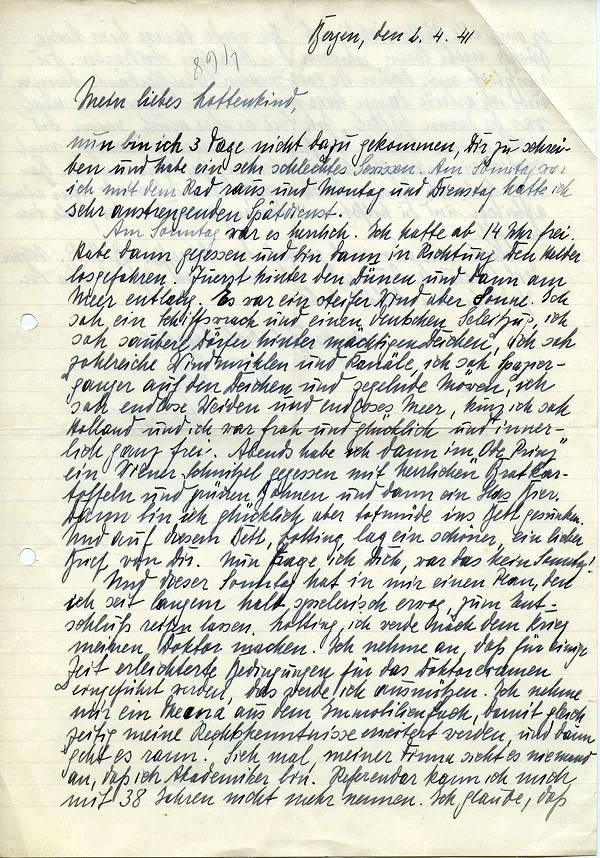 Bergen, den 2. 4. 41
89/1
Mein liebes Lottenkind,
nun bin ich 3 Tage nicht dazu gekommen, Dir zu schrei-
ben und habe ein sehr schlechtes Gewissen. Am Sonntag war
ich mit dem Rad raus und Montag und Dienstag hatte ich
sehr anstrengenden Spätdienst.
Am Sonntag war es herrlich. Ich hatte ab 14 Uhr frei.
Habe dann gegessen und bin dann in Richtung Den Helder
losgefahren. Zuerst hinter den Dünen und dann am
Meer entlang. Es war ein steifer Wind aber Sonne. Ich
sah ein Schiffswrack und einen deutschen Geleitzug, ich
sah saubere Dörfer hinter mächtigen Deichen, ich sah
zahlreiche Windmühlen und Kanäle, ich sah Spazier-
gänger auf den Deichen und segelnde Möven, ich
sah endlose Weiden und endloses Meer, kurz ich sah
Holland und ich war froh und glücklich und inner-
lich ganz frei. Abends habe ich dann im
ein Wiener Schnitzel gegessen mit herrlichen Bratkar-
toffeln und grünen Bohnen und dann ein Glas Bier.
Dann bin ich glücklich aber totmüde ins Bett gesunken.
Und auf diesem Bett, Lotting, lag ein schöner, ein lieber
Brief von Dir. Nun frage ich Dich, war das kein Sonntag!
Und dieser Sonntag hat in mir einen Plan, den
ich seit langem halb spielerisch erwog, zum Ent-
schluß reifen lassen. Lotting, ich werde nach dem Krieg
meinen Doktor machen. Ich nehme an, daß für einige
Zeit erleichterte Bedingungen für das Doktorexamen
eingeführt werden, das werde ich ausnützen. Ich nehme
mir ein Thema aus dem Immobilienfach, damit gleich-
zeitig meine Rechtskenntnisse erweitert werden, und dann
geht es ran. Sieh mal, meiner Firma sieht es niemand
an, daß ich Akademiker bin. Referendar kann ich mich
mit 38 Jahren nicht mehr nennen. Ich glaube, daß